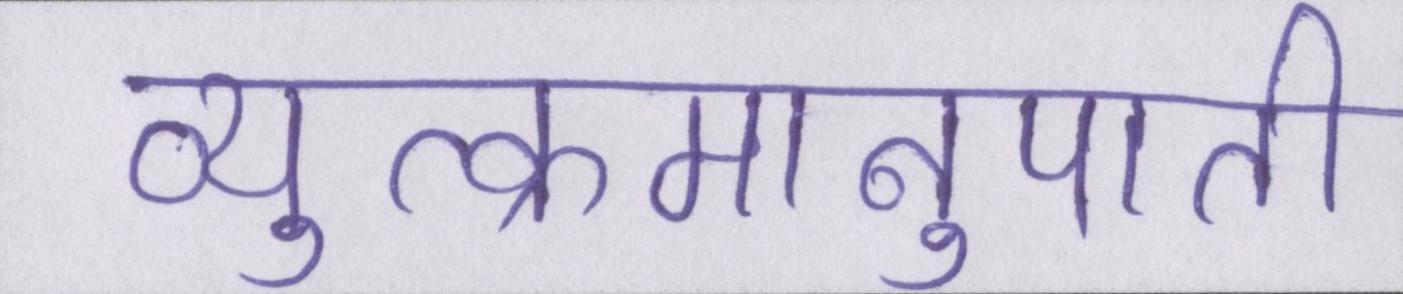 व्युत्क्रमानुपाती